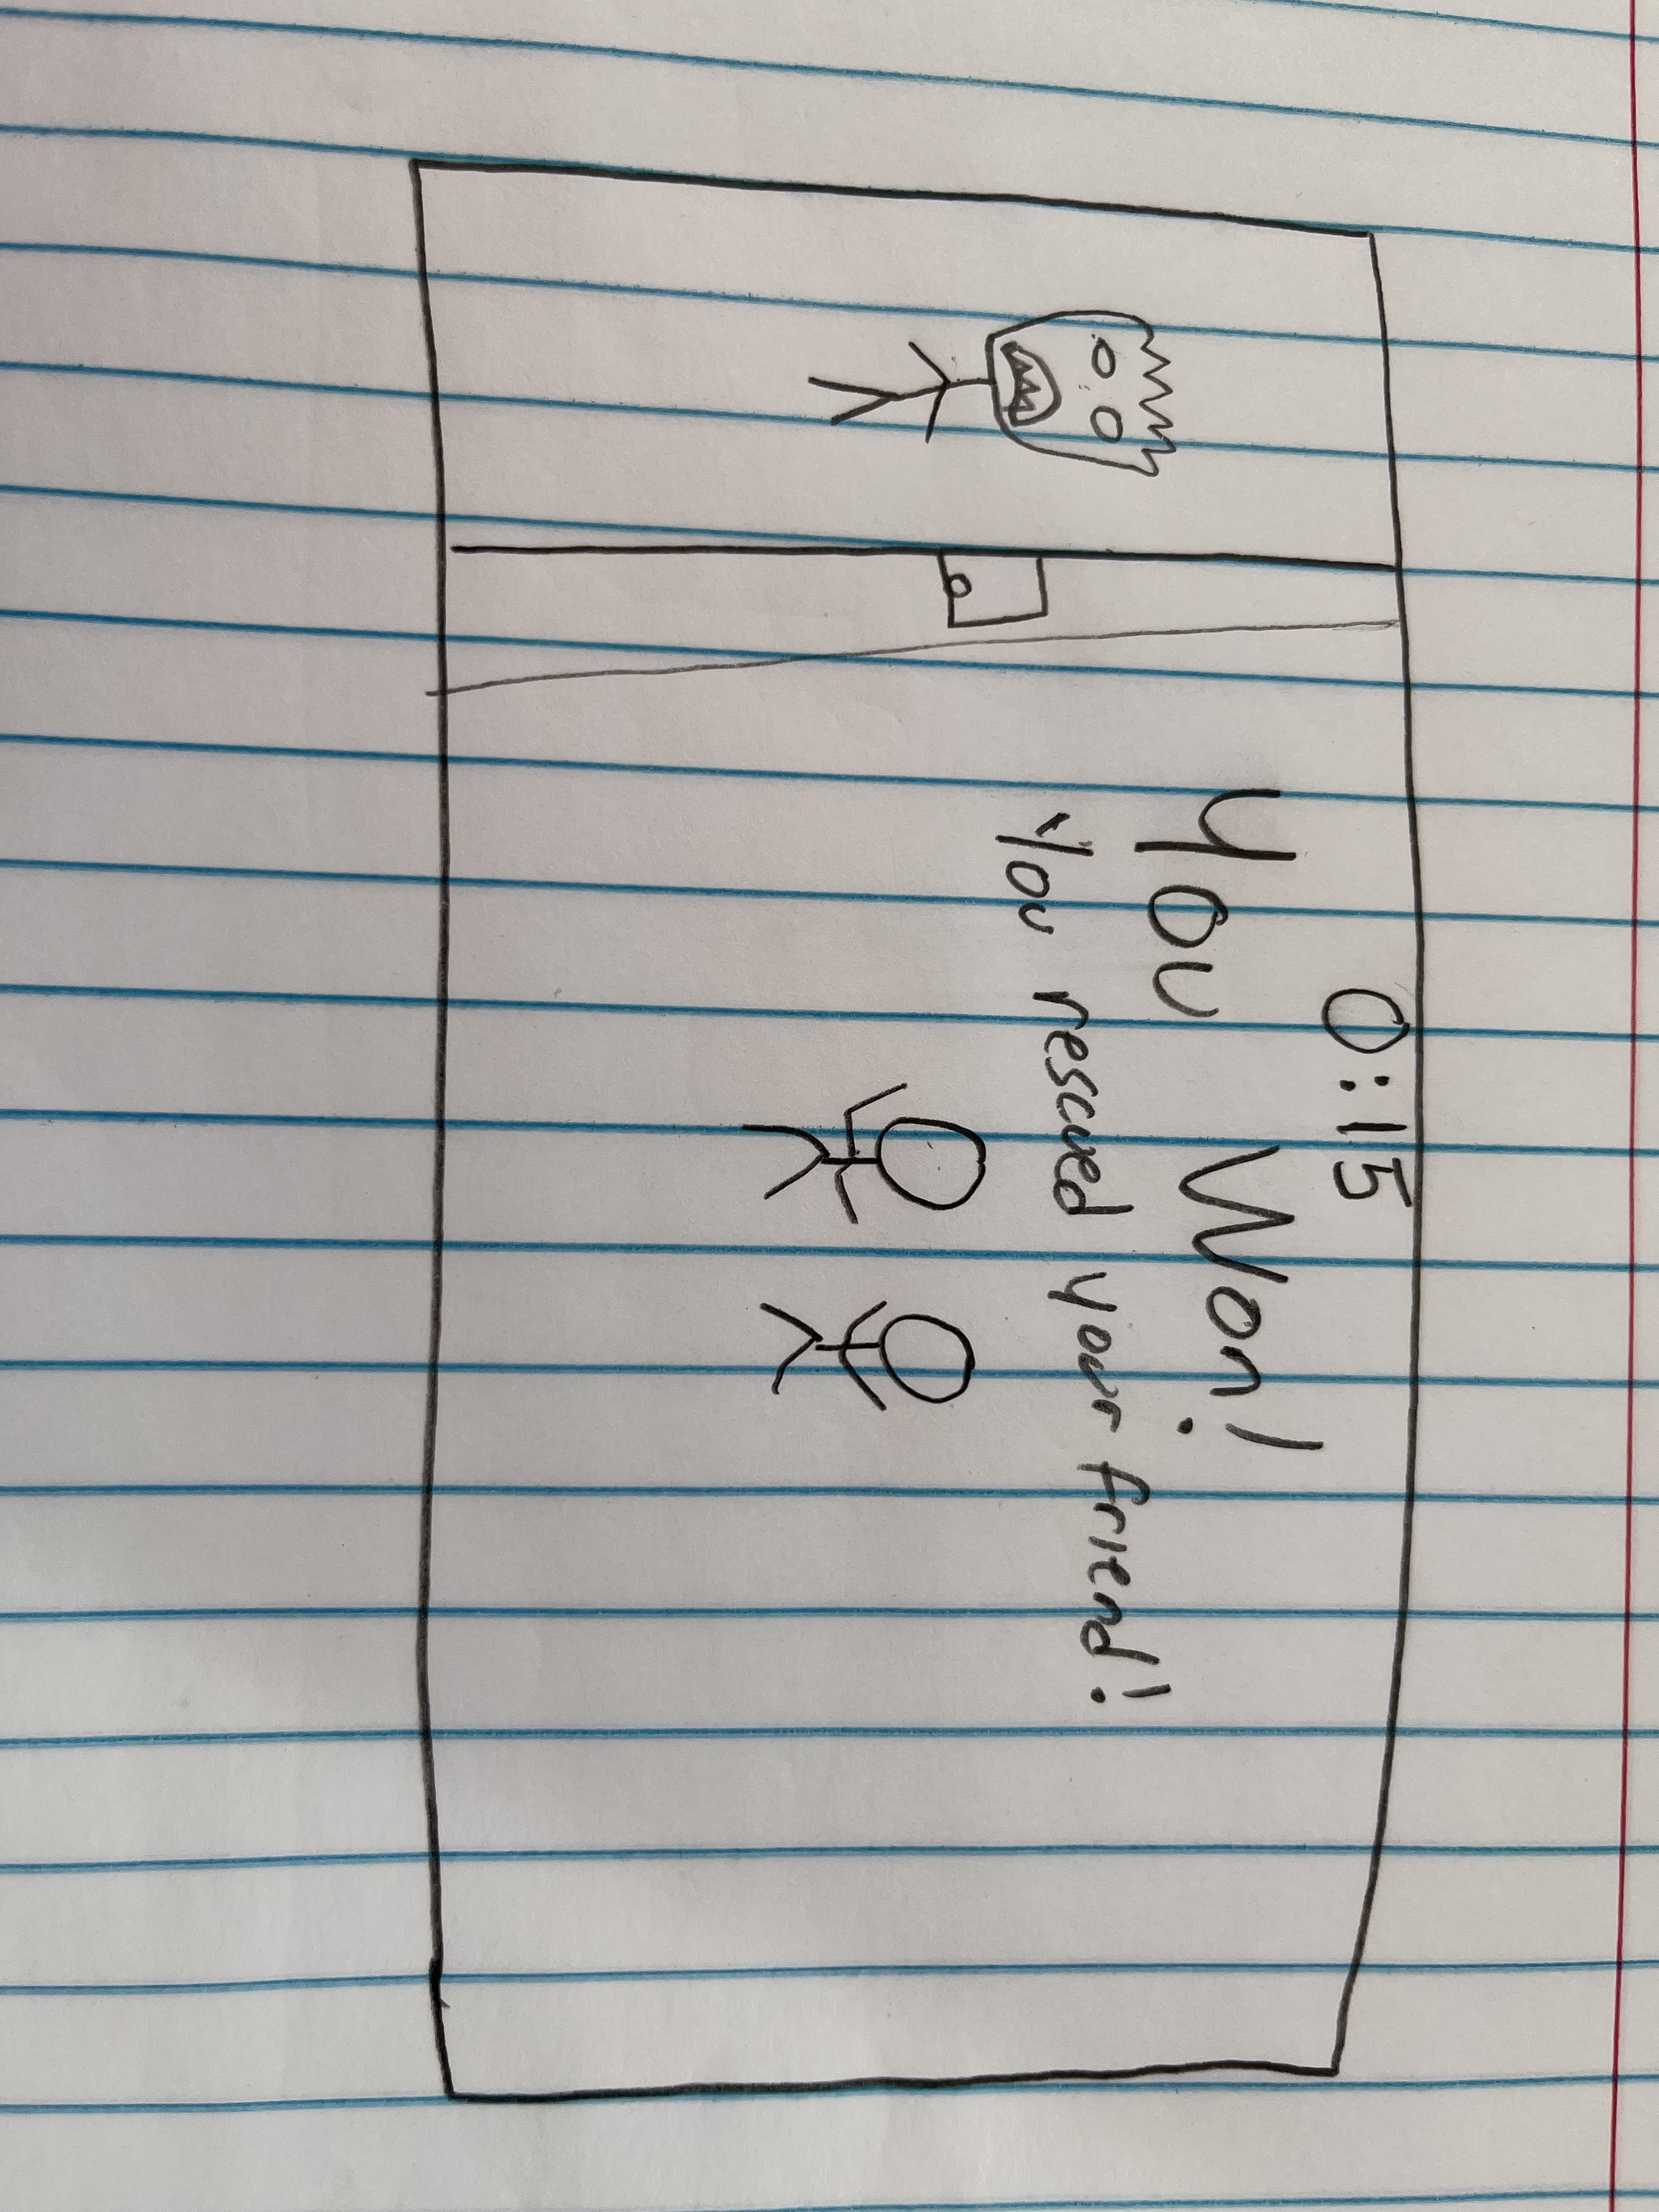 0:15
You Won!
You rescued your friend!